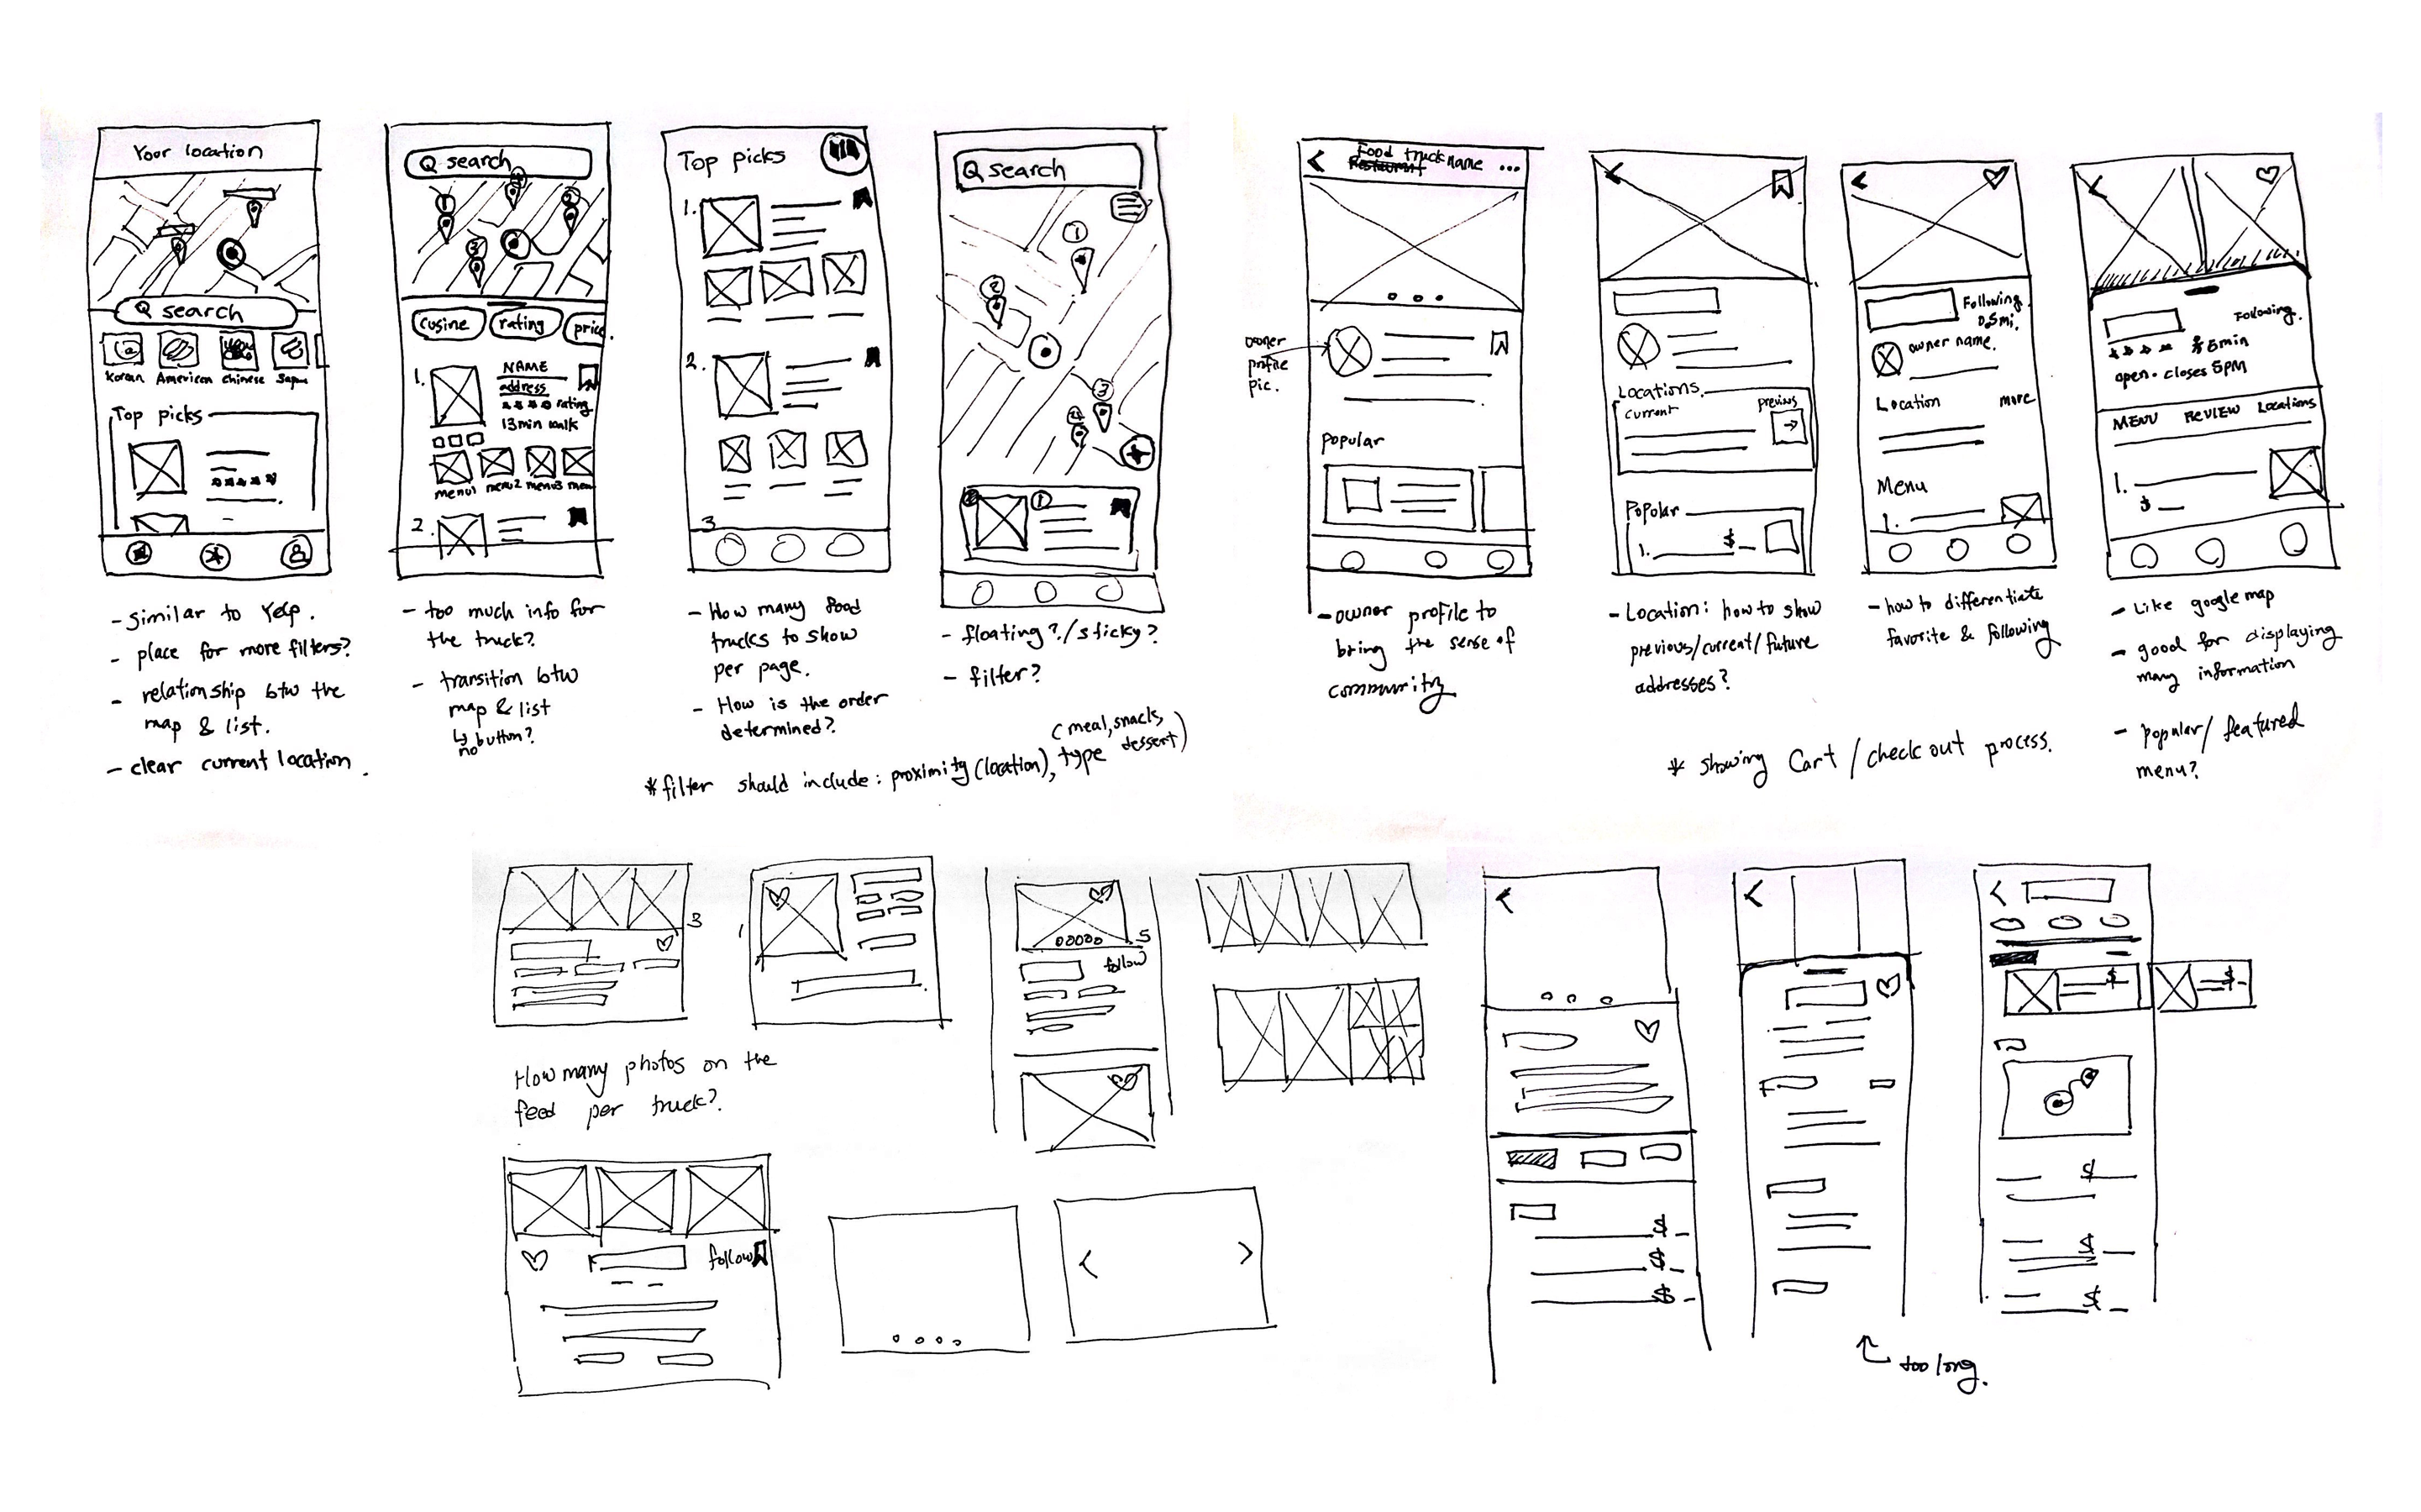 Your location
search
Korean American Chinese Japn
Top picks
- similar to Yelp.
- place for more filters?
- relationship btw the
map & list.
- clear current location.
search
1
2
3
cusine rating price
1.
NAME
address
rating
13min walk
menu1 menu2 menu3 men
2.
- too much info for
the truck?
- transition btw
map & list
↳ button?
no
Top picks
1.
2.
3
- How many food
trucks to show
per page.
- How is the order
determined?
search
1
2
3
4
1
- floating?/sticky?
- filter?
(meal, snack,
dessert)
* filter should include: proximity (location), type
Food truck name ...
owner
profile
pic.
popular
- owner profile to
bring the sense of
community
Locations
current previus
Popolar
1. $
- Location: how to show
previous/current/future
addresses?
Following.
0.5mi.
owner name.
Location more
Menu
1.
- how to differentiate
favorite & following
* showing Cart / check out process.
Following.
5min
open. closes 5PM
MENU REVIEW Locations
1.
$
- Like google map
- good for displaying
many information
- popular/ featured
menu?
3
1
5
follow
How many photos on the
feed per truck?
follow
$
$
$
too long.
$
$
$
$
$